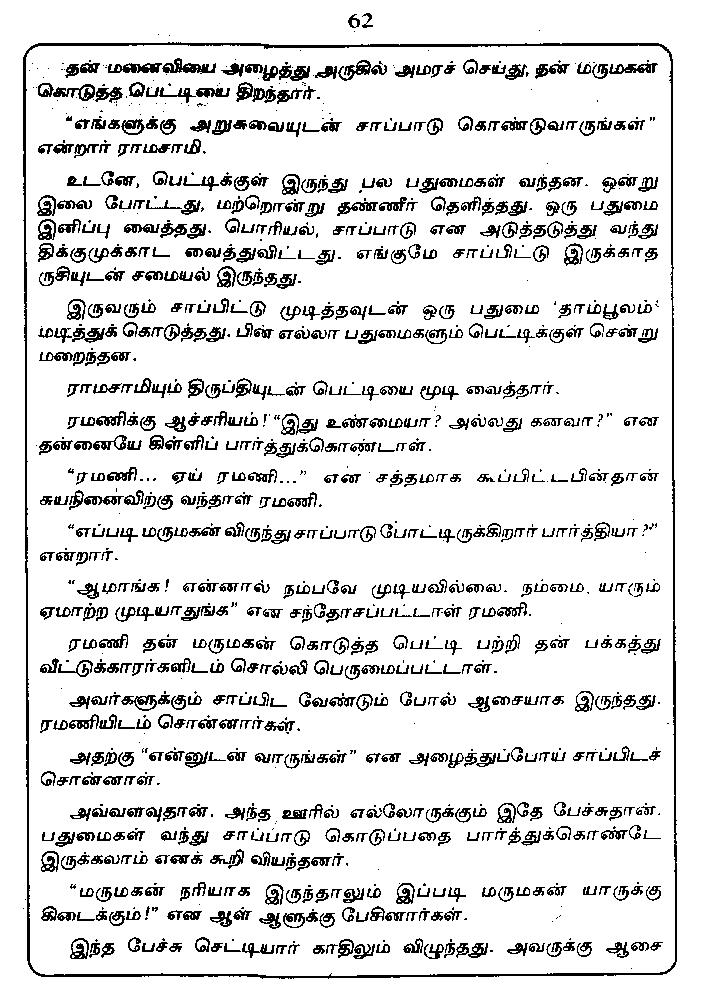 62
தன் மனைவியை அழைத்து அருகில் அமரச் செய்து, தன் மருமகன்
கொடுத்த பெட்டியை திறந்தார்.
“எங்களுக்கு அறுசுவையுடன் சாப்பாடு கொண்டுவாருங்கள்”
என்றார் ராமசாமி.
உடனே, பெட்டிக்குள் இருந்து பல பதுமைகள் வந்தன. ஒன்று
இலை போட்டது, மற்றொன்று தண்ணீர் தெளித்தது. ஒரு பதுமை
இனிப்பு வைத்தது. பொரியல், சாப்பாடு என அடுத்தடுத்து வந்து
திக்குமுக்காட வைத்துவிட்டது. எங்குமே சாப்பிட்டு இருக்காத
ருசியுடன் சமையல் இருந்தது.
இருவரும் சாப்பிட்டு முடித்தவுடன் ஒரு பதுமை ‘தாம்பூலம்’
மடித்துக் கொடுத்தது. பின் எல்லா பதுமைகளும் பெட்டிக்குள் சென்று
மறைந்தன.
ராமசாமியும் திருப்தியுடன் பெட்டியை மூடி வைத்தார்.
ரமணிக்கு ஆச்சரியம்! “இது உண்மையா? அல்லது கனவா?” என
தன்னையே கிள்ளிப் பார்த்துக்கொண்டாள்.
“ரமணி... ஏய் ரமணி...” என சத்தமாக கூப்பிட்டபின்தான்
சுயநினைவிற்கு வந்தாள் ரமணி.
“எப்படி மருமகன் விருந்து சாப்பாடு போட்டிருக்கிறார் பார்த்தியா?”
என்றார்.
“ஆமாங்க! என்னால் நம்பவே முடியவில்லை. நம்மை யாரும்
ஏமாற்ற முடியாதுங்க” என சந்தோசப்பட்டாள் ரமணி.
ரமணி தன் மருமகன் கொடுத்த பெட்டி பற்றி தன் பக்கத்து
வீட்டுக்காரர்களிடம் சொல்லி பெருமைப்பட்டாள்.
அவர்களுக்கும் சாப்பிட வேண்டும் போல் ஆசையாக இருந்தது.
ரமணியிடம் சொன்னார்கள்.
அதற்கு “என்னுடன் வாருங்கள்” என அழைத்துப்போய் சாப்பிடச்
சொன்னாள்.
அவ்வளவுதான். அந்த ஊரில் எல்லோருக்கும் இதே பேச்சுதான்.
பதுமைகள் வந்து சாப்பாடு கொடுப்பதை பார்த்துக்கொண்டே
இருக்கலாம் எனக் கூறி வியந்தனர்.
“மருமகன் நரியாக இருந்தாலும் இப்படி மருமகன் யாருக்கு
கிடைக்கும்!” என ஆள் ஆளுக்கு பேசினார்கள்.
இந்த பேச்சு செட்டியார் காதிலும் விழுந்தது. அவருக்கு ஆசை